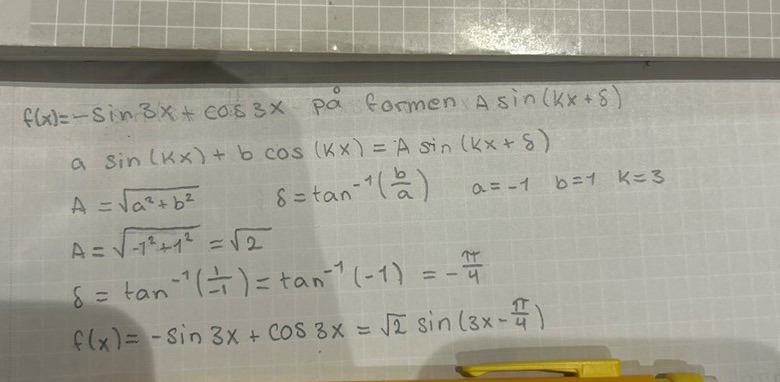 f(x)=-sin 3x + cos 3x på formen A sin(kx+δ)
a sin(kx) + b cos(kx) = A sin(kx+δ)
A = √(a²+b²) δ = tan⁻¹(b/a) a=-1 b=1 k=3
A = √(-1²+1²) = √2
δ = tan⁻¹(1/-1) = tan⁻¹(-1) = -π/4
f(x) = -sin 3x + cos 3x = √2 sin(3x-π/4)